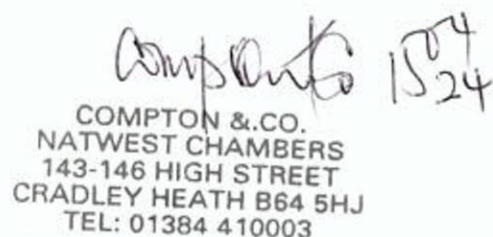 Compton & Co 15 04 24
COMPTON &.CO.
NATWEST CHAMBERS
143-146 HIGH STREET
CRADLEY HEATH B64 5HJ
TEL: 01384 410003